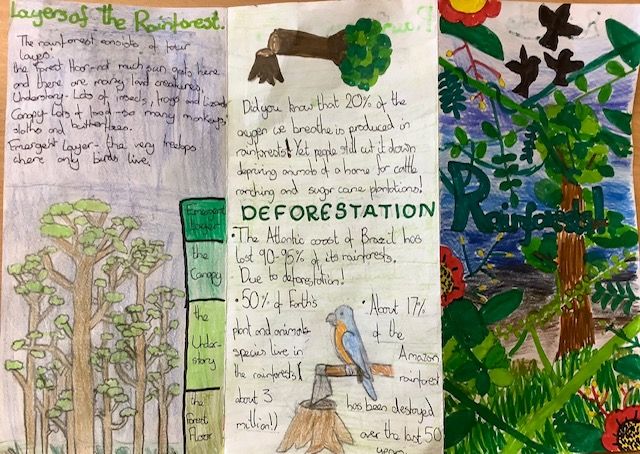 Layers of the Rainforest.
The rainforest consists of four
layers.
the forest floor - not much sun gets here
and there are many land creatures.
Understory - Lots of insects, frogs and lizards
Canopy - Lots of food - so many monkeys,
sloths and butterflies.
Emergent Layer - the very treetops
where only birds live.
Emergent
Layer
the
Canopy
the
Under-
story
the
Forest
Floor
Did you know that 20% of the
oxygen we breathe is produced in
rainforests! Yet people still cut it down
depriving animals of a home for cattle
ranching and sugar cane plantations!
DEFORESTATION
• The Atlantic coast of Brazil has
lost 90-95% of its rainforests.
Due to deforestation!
• 50% of Earth's
plant and animals
species live in
the rainforests (
about 3
million!)
• About 17%
of the
Amazon
rainforest
has been destroyed
over the last 50
years
Rainforests!